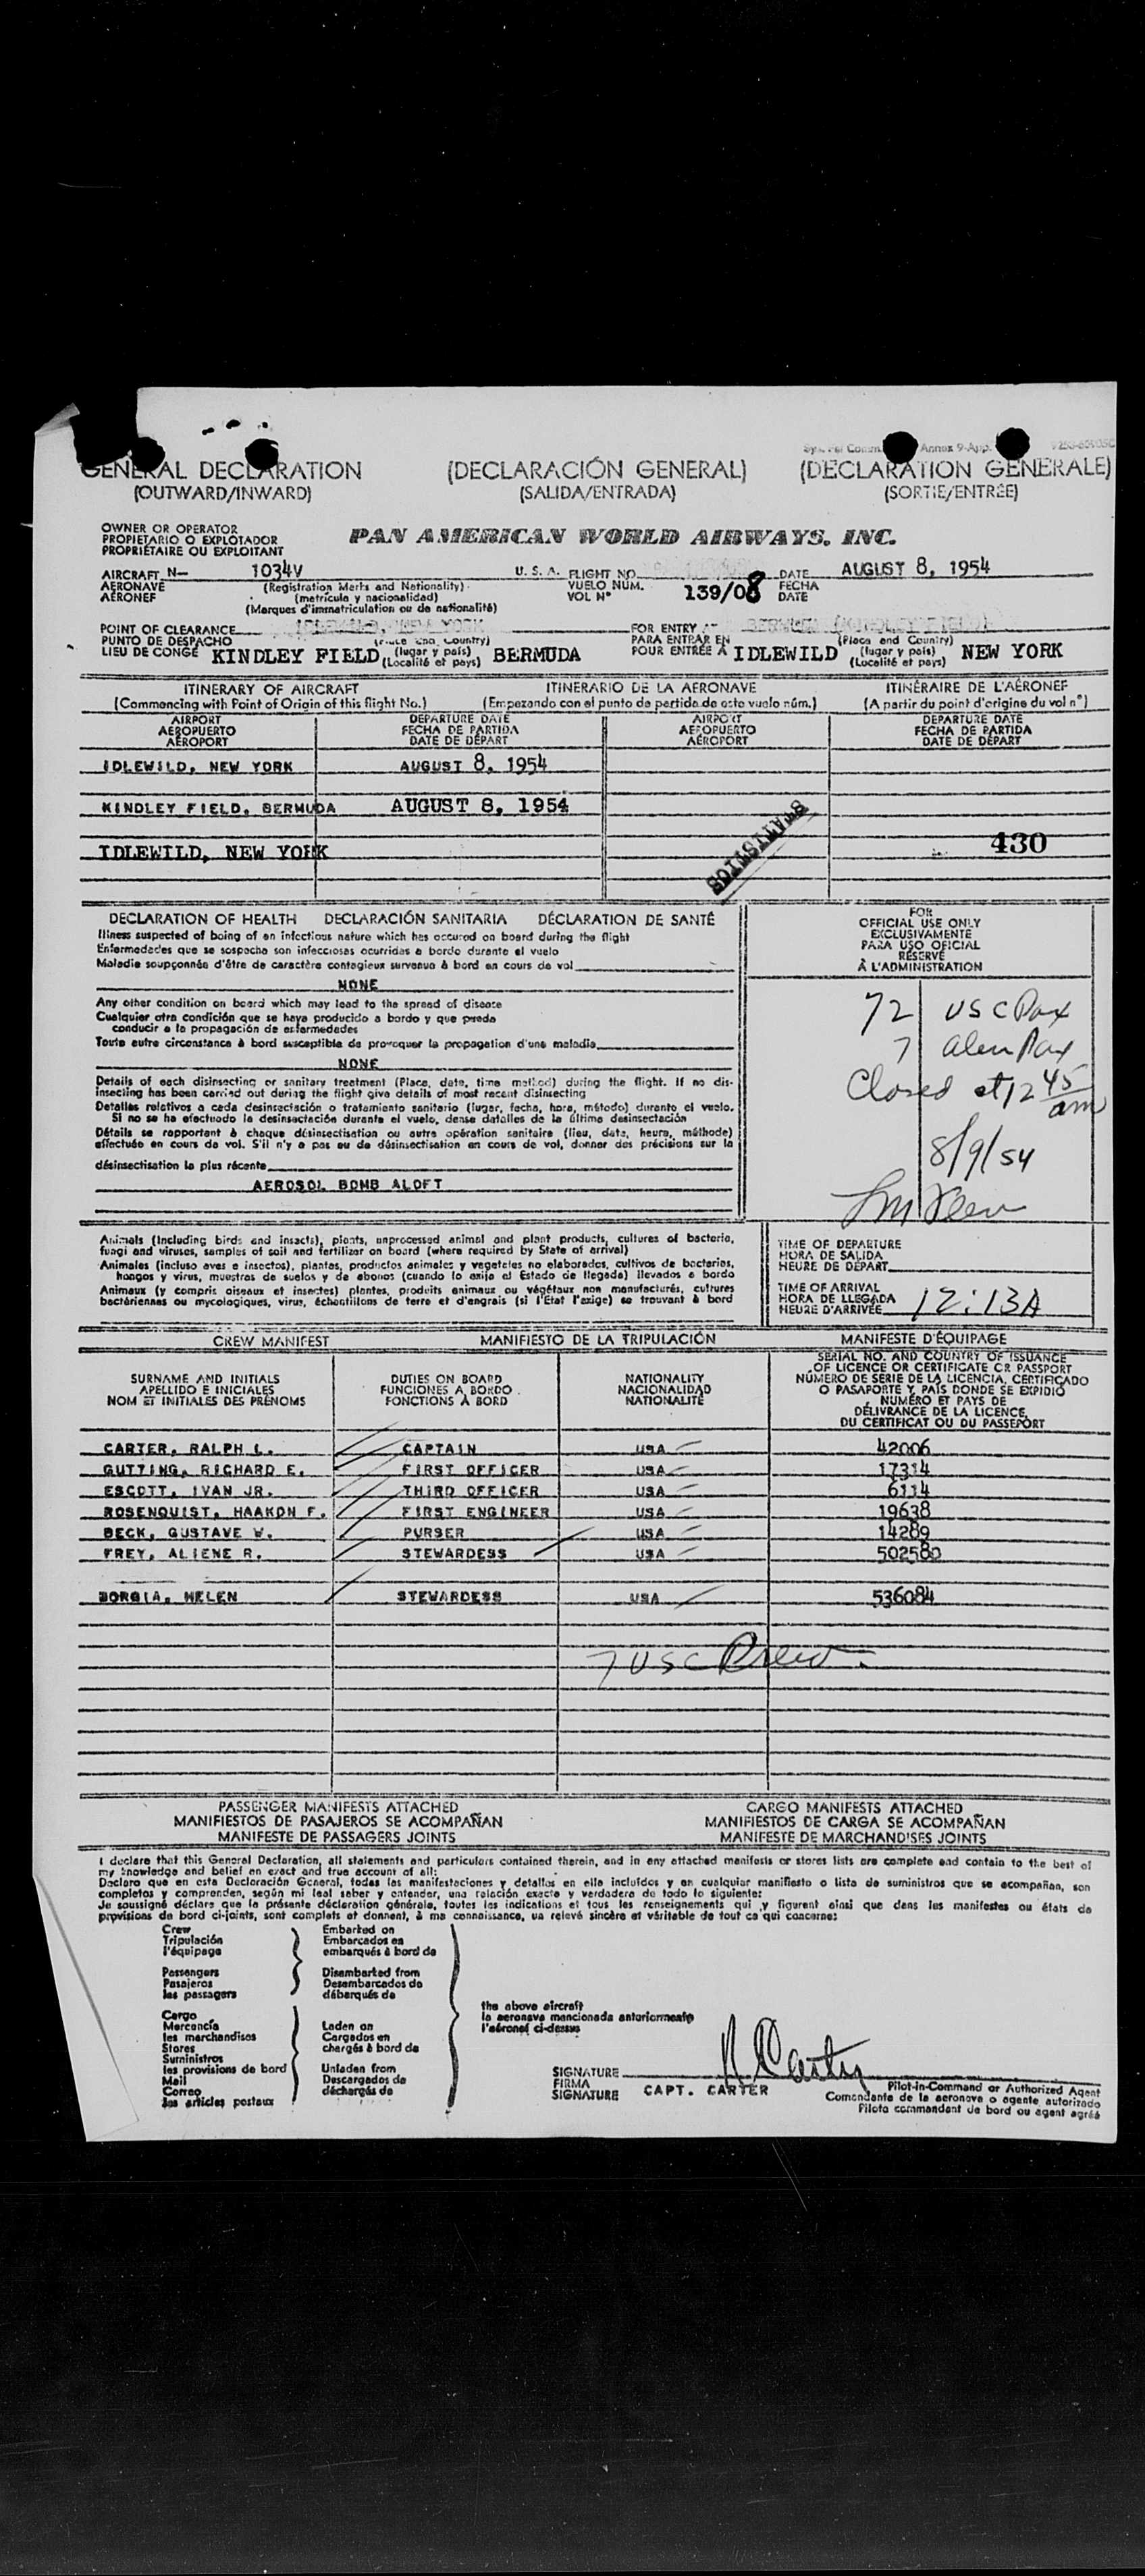 Annex 9-App.
GENERAL DECLARATION (DECLARACIÓN GENERAL) (DECLARATION GENERALE)
(OUTWARD/INWARD) (SALIDA/ENTRADA) (SORTIE/ENTRÉE)
OWNER OR OPERATOR
PROPIETARIO O EXPLOTADOR
PROPRIÉTAIRE OU EXPLOITANT
PAN AMERICAN WORLD AIRWAYS, INC.
AIRCRAFT N— 1034V U. S. A. FLIGHT NO. DATE AUGUST 8, 1954
AERONAVE (Registration Marks and Nationality) VUELO NUM. 139/08 FECHA
AÉRONEF (matrícula y nacionalidad) VOL N° DATE
(Marques d'immatriculation ou de nationalité)
POINT OF CLEARANCE IDLEWILD, NEW YORK FOR ENTRY AT BERMUDA (KINDLEY FIELD)
PUNTO DE DESPACHO (Place and Country) PARA ENTRAR EN (Place and Country)
LIEU DE CONGÉ KINDLEY FIELD (lugar y país) BERMUDA POUR ENTRÉE À IDLEWILD (lugar y país) NEW YORK
(Localité et pays) (Localité et pays)
ITINERARY OF AIRCRAFT ITINERARIO DE LA AERONAVE ITINÉRAIRE DE L'AÉRONEF
(Commencing with Point of Origin of this flight No.) (Empezando con el punto de partida de este vuelo núm.) (A partir du point d'origine du vol n°)
AIRPORT DEPARTURE DATE AIRPORT DEPARTURE DATE
AEROPUERTO FECHA DE PARTIDA AEROPUERTO FECHA DE PARTIDA
AÉROPORT DATE DE DÉPART AÉROPORT DATE DE DÉPART
IDLEWILD, NEW YORK AUGUST 8, 1954
KINDLEY FIELD, BERMUDA AUGUST 8, 1954
STATISTICS
IDLEWILD, NEW YORK 430
DECLARATION OF HEALTH DECLARACIÓN SANITARIA DÉCLARATION DE SANTÉ
Illness suspected of being of an infectious nature which has occured on board during the flight
Enfermedades que se sospecha son infecciosas ocurridas a bordo durante el vuelo
Maladie soupçonnée d'être de caractère contagieux survenue à bord en cours de vol
NONE
Any other condition on board which may lead to the spread of disease
Cualquier otra condición que se haya producido a bordo y que pueda
conducir a la propagación de enfermedades
Toute autre circonstance à bord susceptible de provoquer la propagation d'une maladie
NONE
Details of each disinsecting or sanitary treatment (Place, date, time method) during the flight. If no dis-
insecting has been carried out during the flight give details of most recent disinsecting
Detalles relativos a cada desinsectación o tratamiento sanitario (lugar, fecha, hora, método) durante el vuelo.
Si no se ha efectuado la desinsectación durante el vuelo, dense detalles de la última desinsectación
Détails se rapportant à chaque désinsectisation ou autre opération sanitaire (lieu, date, heure, méthode)
effectuée en cours de vol. S'il n'y a pas eu de désinsectisation en cours de vol, donner des précisions sur la
désinsectisation la plus récente
AEROSOL BOMB ALOFT
FOR
OFFICIAL USE ONLY
EXCLUSIVAMENTE
PARA USO OFICIAL
RÉSERVÉ
À L'ADMINISTRATION
72 USC Pax
7 alien Pax
Closed at 12 45 am
8/9/54
Animals (Including birds and insects), plants, unprocessed animal and plant products, cultures of bacteria,
fungi and viruses, samples of soil and fertilizer on board (where required by State of arrival)
Animales (incluso aves e insectos), plantas, productos animales y vegetales no elaborados, cultivos de bacterias,
hongos y virus, muestras de suelos y de abonos (cuando lo exija el Estado de llegada) llevados a bordo
Animaux (y compris oiseaux et insectes) plantes, produits animaux ou végétaux non manufacturés, cultures
bactériennes ou mycologiques, virus, échantillons de terre et d'engrais (si l'État l'exige) se trouvant à bord
TIME OF DEPARTURE
HORA DE SALIDA
HEURE DE DÉPART
TIME OF ARRIVAL
HORA DE LLEGADA 12:13A
HEURE D'ARRIVÉE
CREW MANIFEST MANIFIESTO DE LA TRIPULACIÓN MANIFESTE D'ÉQUIPAGE
SURNAME AND INITIALS
APELLIDO E INICIALES
NOM ET INITIALES DES PRÉNOMS
DUTIES ON BOARD
FUNCIONES A BORDO
FONCTIONS À BORD
NATIONALITY
NACIONALIDAD
NATIONALITÉ
SERIAL NO. AND COUNTRY OF ISSUANCE
OF LICENCE OR CERTIFICATE OR PASSPORT
NÚMERO DE SERIE DE LA LICENCIA, CERTIFICADO
O PASAPORTE Y PAÍS DONDE SE EXPIDIÓ
NUMÉRO ET PAYS DE
DÉLIVRANCE DE LA LICENCE,
DU CERTIFICAT OU DU PASSEPORT
CARTER, RALPH L. CAPTAIN USA 42006
GUTTING, RICHARD E. FIRST OFFICER USA 17314
ESCOTT, IVAN JR. THIRD OFFICER USA 6114
ROSENQUIST, HAAKON F. FIRST ENGINEER USA 19638
BECK, GUSTAVE W. PURSER USA 14289
FREY, ALIENE R. STEWARDESS USA 502580
BORGIA, HELEN STEWARDESS USA 536084
7 USC Crew
PASSENGER MANIFESTS ATTACHED CARGO MANIFESTS ATTACHED
MANIFIESTOS DE PASAJEROS SE ACOMPAÑAN MANIFIESTOS DE CARGA SE ACOMPAÑAN
MANIFESTE DE PASSAGERS JOINTS MANIFESTE DE MARCHANDISES JOINTS
I declare that this General Declaration, all statements and particulars contained therein, and in any attached manifests or stores lists are complete and contain to the best of
my knowledge and belief an exact and true account of all:
Declaro que en esta Declaración General, todas las manifestaciones y detalles en ella incluídos y en cualquier manifiesto o lista de suministros que se acompañan, son
completos y comprenden, según mi leal saber y entender, una relación exacta y verdadera de todo lo siguiente:
Je soussigné déclare que la présente déclaration générale, toutes les indications et tous les renseignements qui y figurent ainsi que dans les manifestes ou états de
provisions de bord ci-joints, sont complets et donnent, à ma connaissance, un relevé sincère et véritable de tout ce qui concerne:
Crew Embarked on
Tripulación Embarcados en
l'équipage embarqués à bord de
Passengers Disembarked from
Pasajeros Desembarcados de
les passagers débarqués de
Cargo
Mercancía Laden on
les marchandises Cargados en
Stores chargés à bord de
Suministros
les provisions de bord Unladen from
Mail Descargados de
Correo déchargés de
les articles postaux
the above aircraft
la aeronave mencionada anteriormente
l'aéronef ci-dessus
R Carter
SIGNATURE
FIRMA
SIGNATURE CAPT. CARTER
Pilot-in-Command or Authorized Agent
Comandante de la aeronave o agente autorizado
Pilote commandant de bord ou agent agréé